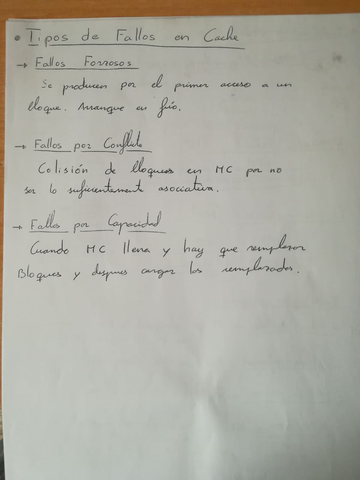 • Tipos de Fallos en Cache
→ Fallos Forzosos
Se producen por el primer acceso a un
bloque. Arranque en frío.
→ Fallos por Conflicto
Colisión de bloques en MC por no
ser lo suficientemente asociativa.
→ Fallos por Capacidad
Cuando MC llena y hay que remplazar
Bloques y despues cargar los remplazados.